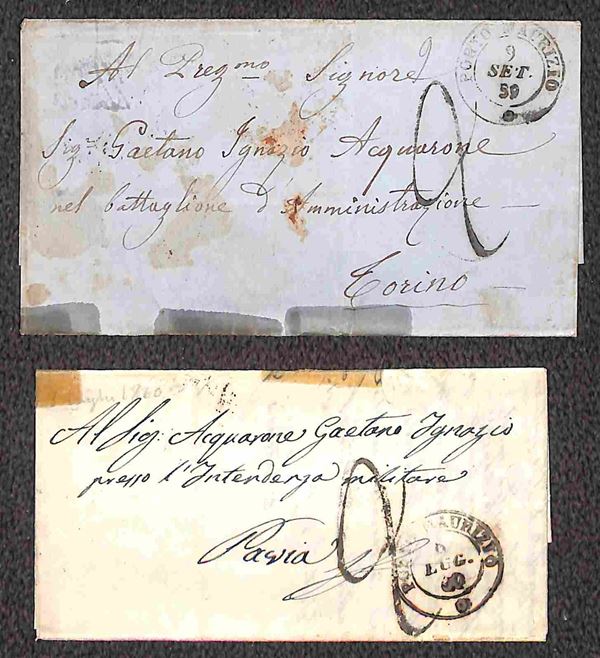 PORTO MAURIZIO
9
SET.
59
Al Pregmo Signore
Sigr Gaetano Ignazio Acquarone
nel battaglione d'Amministrazione
2
Torino
luglio 1860
Al Sig. Acquarone Gaetano Ignazio
presso l'Intendenza militare
Pavia
2
PORTO MAURIZIO
LUG.
60